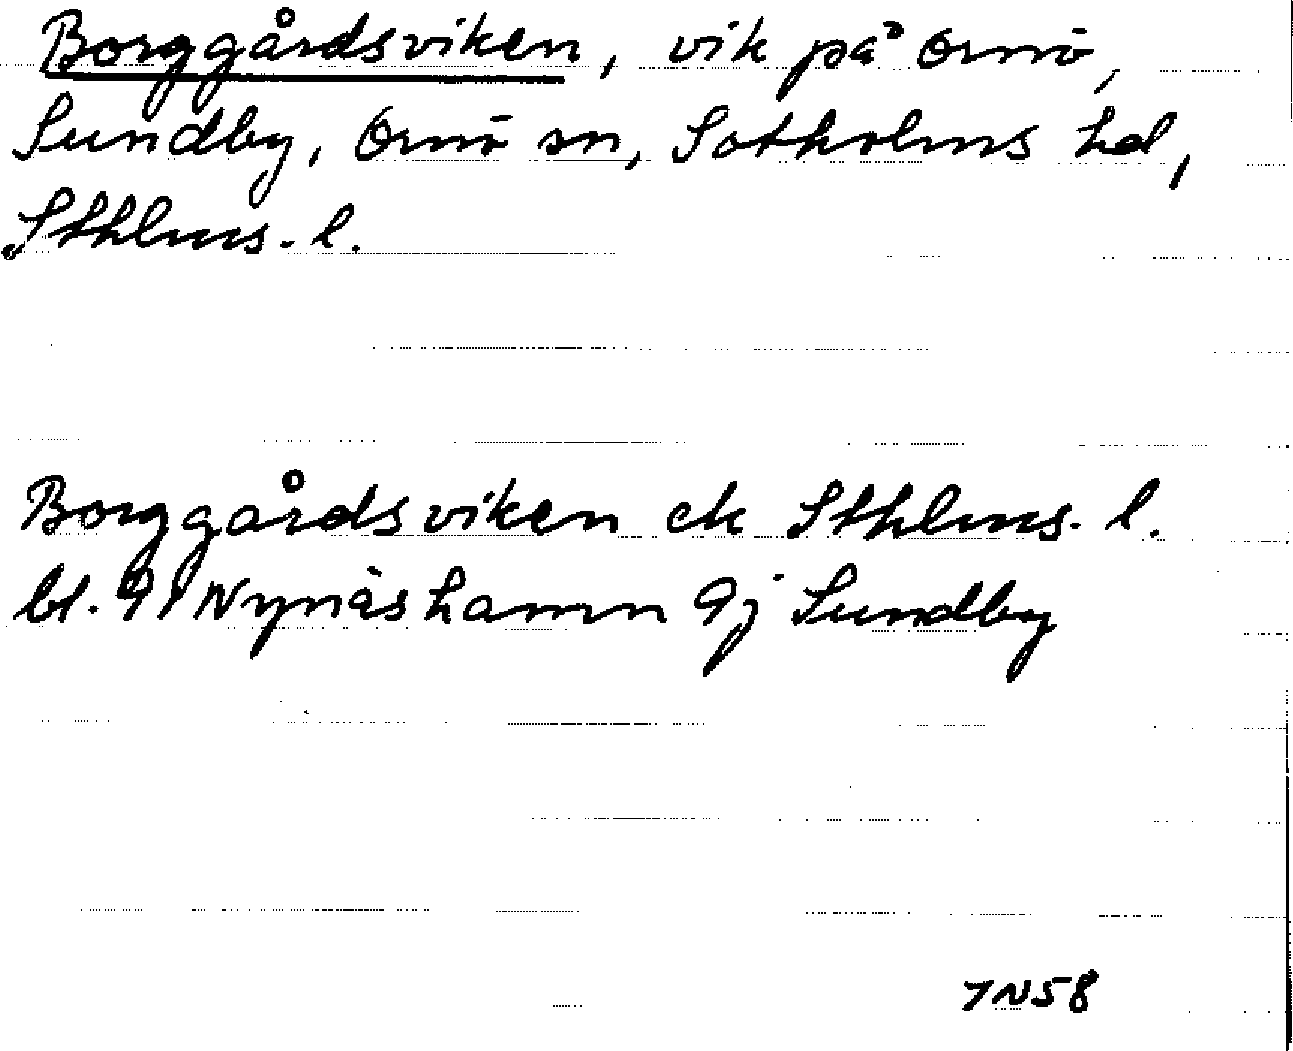 Borggårdsviken, vik på Ornö,
Sundby, Ornö sn, Sotholms hd,
Sthlms. l.
Borggårdsviken ek Sthlms. l.
bl. 91 Nynäshamn 9j Sundby
7N58